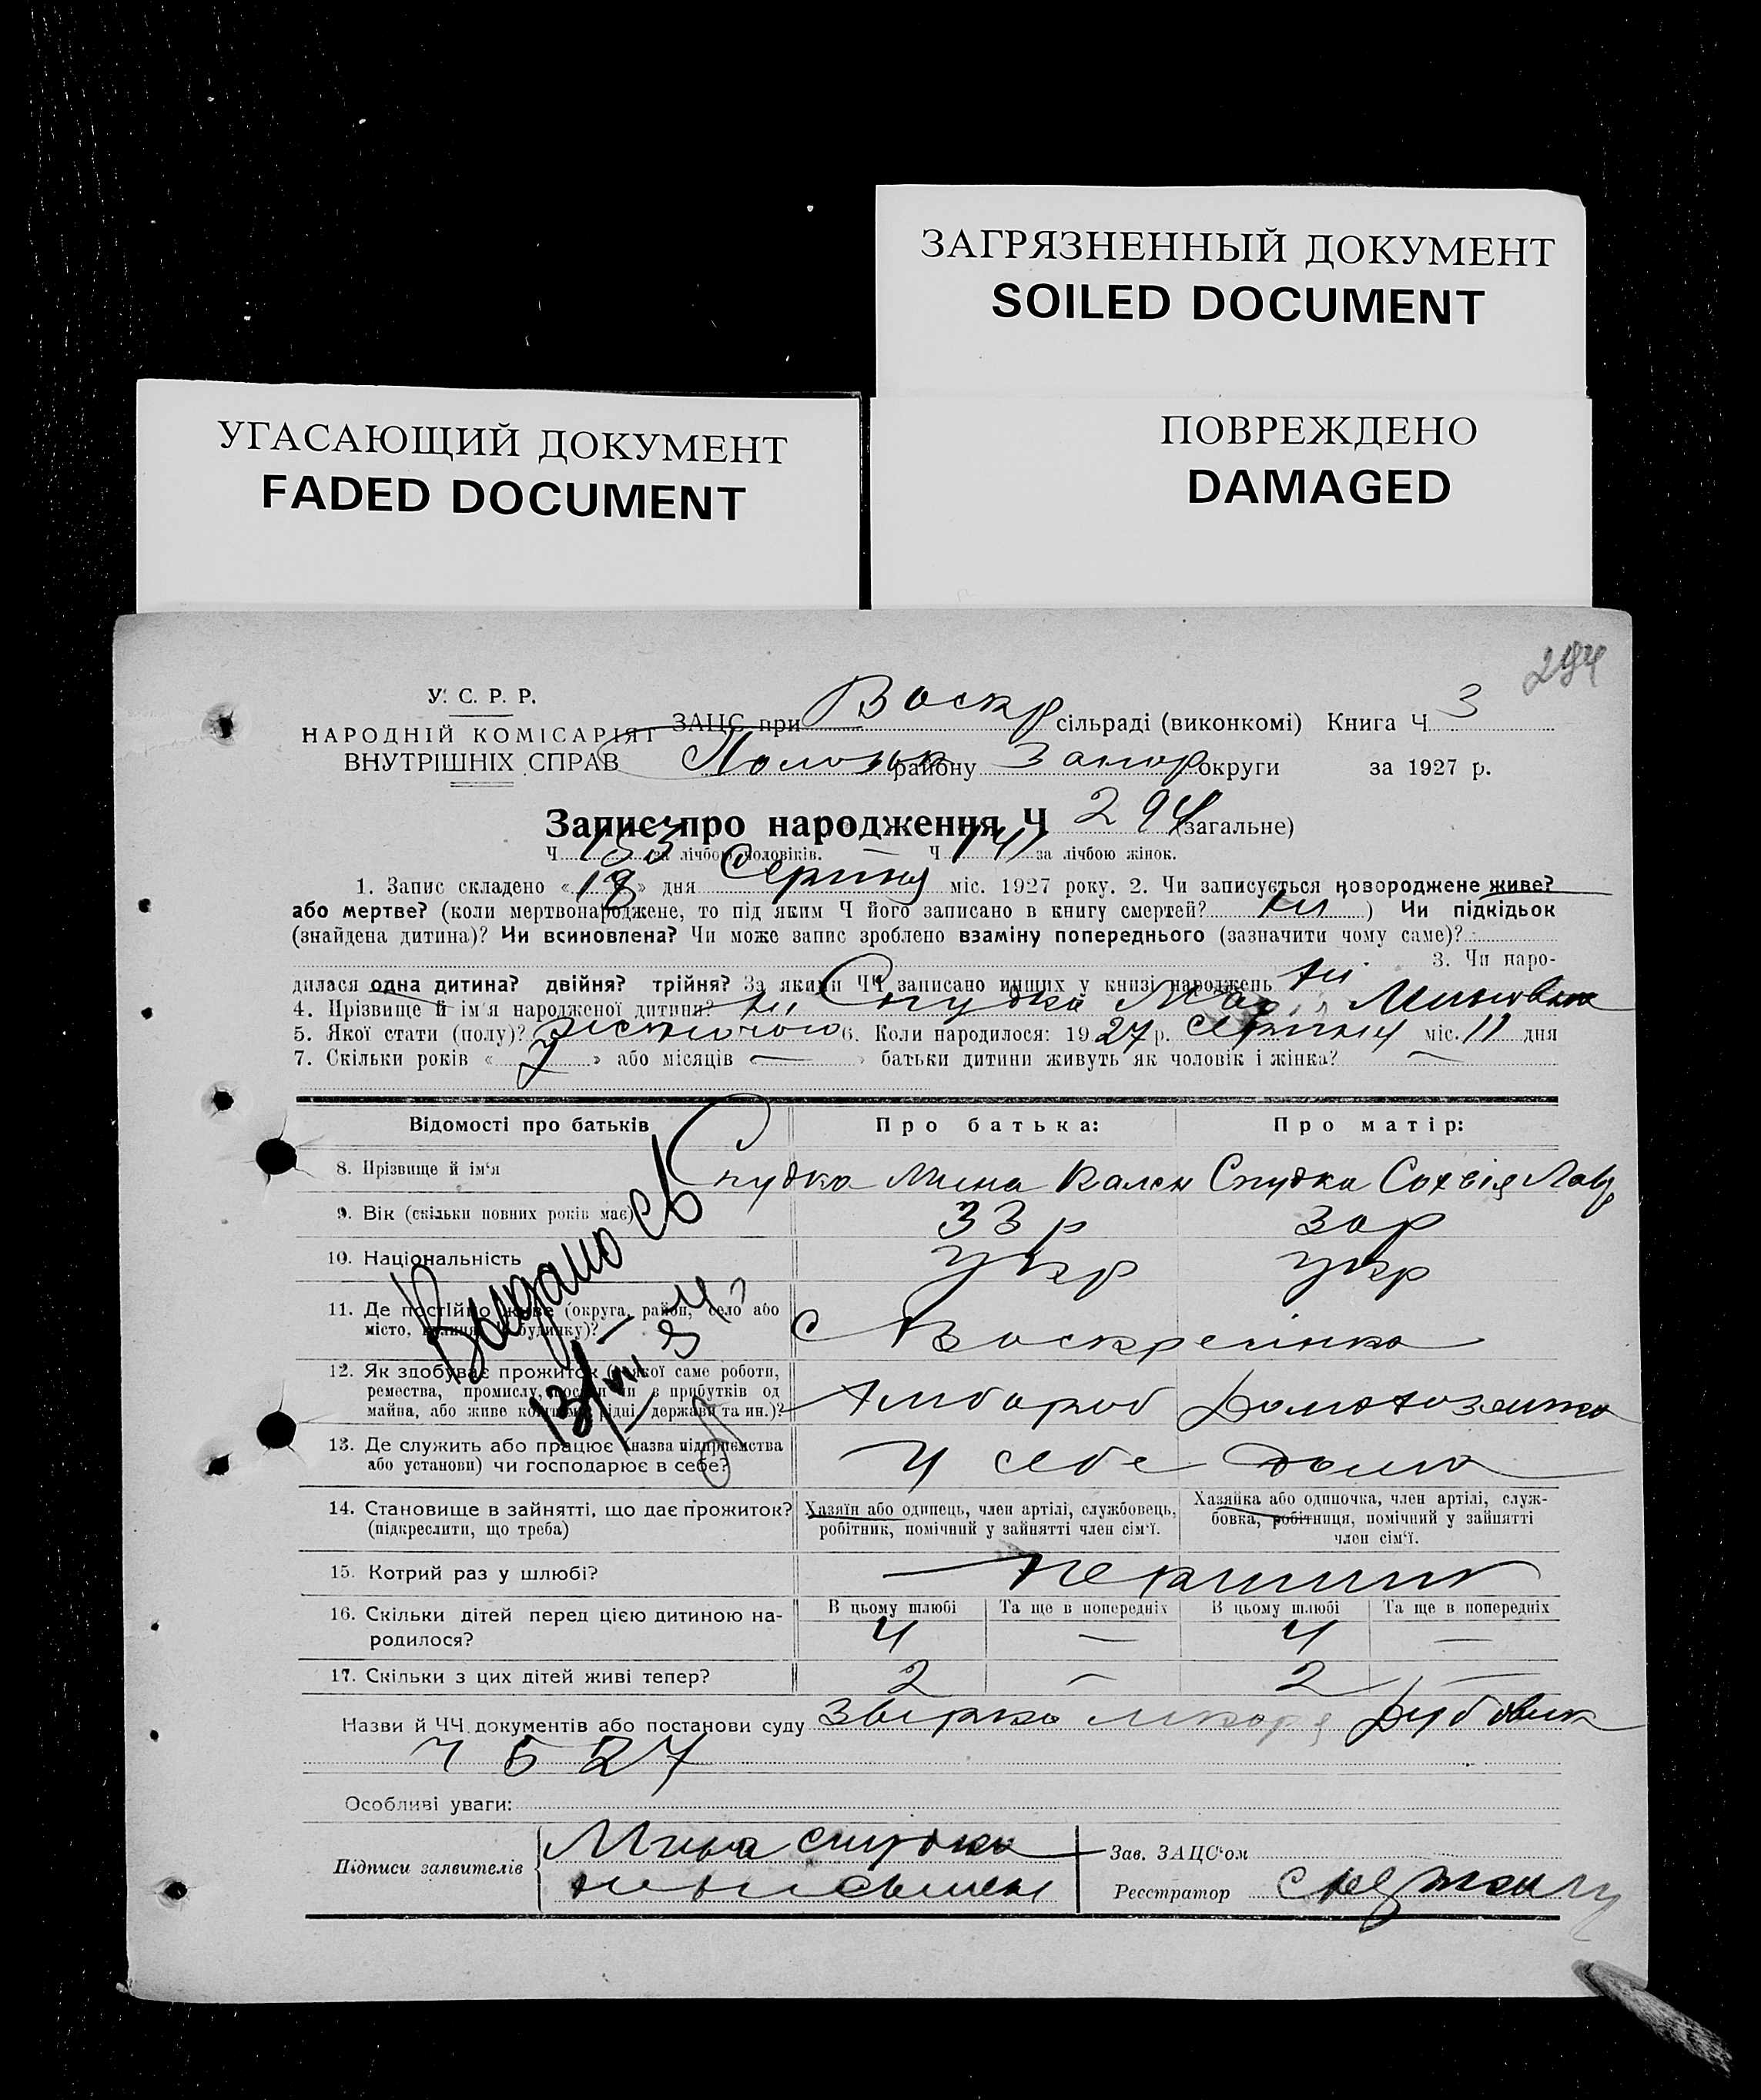 ЗАГРЯЗНЕННЫЙ ДОКУМЕНТ
SOILED DOCUMENT
УГАСАЮЩИЙ ДОКУМЕНТ
FADED DOCUMENT
ПОВРЕЖДЕНО
DAMAGED
294
У. С. Р. Р.
НАРОДНІЙ КОМІСАРІЯТ
ВНУТРІШНІХ СПРАВ
ЗАЦС при Воскр сільраді (виконкомі) Книга Ч 3
району Запор округи за 1927 р.
Запис про народження Ч 294 (загальне)
Ч 153 за лічбою чоловіків. Ч 141 за лічбою жінок.
1. Запис складено « 18 » дня Серпня міс. 1927 року. 2. Чи записується новороджене живе?
або мертве? (коли мертвонароджене, то під яким Ч його записано в книгу смертей? ні ) Чи підкідьок
(знайдена дитина)? Чи всиновлена? Чи може запис зроблено взаміну попереднього (зазначити чому саме)?
3. Чи наро-
дилася одна дитина? двійня? трійня? За якими ЧЧ записано инших у книзі народжень ні
4. Прізвище й ім'я народженої дитини? Спудка
5. Якої стати (полу)? 6. Коли народилося: 1927 р. серпня міс. 11 дня
7. Скільки років « 7 » або місяців « — » батьки дитини живуть як чоловік і жінка? —
Відомості про батьків Про батька: Про матір:
8. Прізвище й ім'я Спудка Мина Кален Спудка Сохвія Лавр
9. Вік (скільки повних років має) 33 р 30 р
10. Національність укр укр
11. Де постійно живе (округа, район, село або
місто, вулиця, будинку)? с Воскресінка
12. Як здобуває прожиток (з якої саме роботи,
ремества, промислу, посади чи з прибутків од
майна, або живе коштом рідні, держави та ин.)? Хлібороб Домохозяйка
13. Де служить або працює (назва підприємства
або установи) чи господарює в себе? У себе дома
14. Становище в зайнятті, що дає прожиток?
(підкреслити, що треба)
Хазяїн або одинець, член артілі, службовець,
робітник, помічний у зайнятті член сім'ї.
Хазяйка або одиночка, член артілі, служ-
бовка, робітниця, помічний у зайнятті
член сім'ї.
15. Котрий раз у шлюбі? — перший
В цьому шлюбі Та ще в попередніх В цьому шлюбі Та ще в попередніх
16. Скільки дітей перед цією дитиною на-
родилося? 4 — 4 —
17. Скільки з цих дітей живі тепер? 2 — 2 —
Назви й ЧЧ документів або постанови суду
Ч 527
Особливі уваги:
Підписи заявителів Мина Спудка
Зав. ЗАЦС'ом
Реєстратор
Выдано св